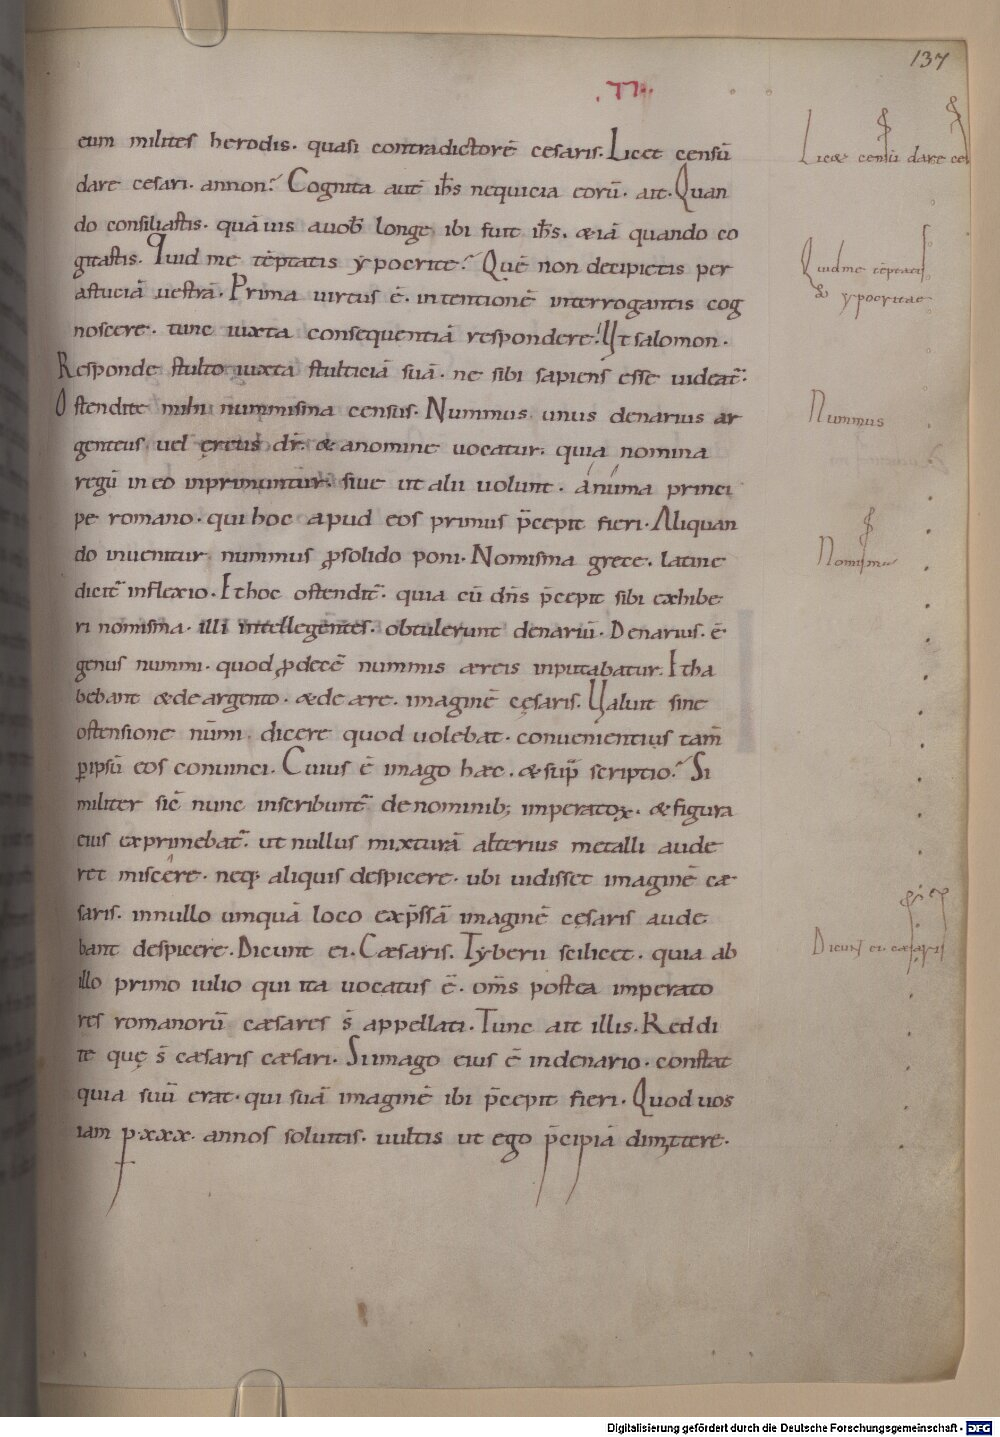 137
eum milites herodis. quasi contradictorē cesaris. Licet censū
dare cesari. annon? Cognita autē ih̄s nequicia eorū. ait. Quan
do consiliastis. quā uis auob̄ longe ibi fuit ih̄s. & iā quando co
gitastis. Quid me tēptatis ypocrite? Quē non decipietis per
astuciā uestrā. Prima uirtus ē. intentionē interrogantis cog
noscere. tunc iuxta consequentiā respondere. Ut salomon.
Responde stulto iuxta stulticiā suā. ne sibi sapiens esse uideat̄.
Ostendite mihi nummisma census. Nummus unus denarius ar
genteus uel ęreus dr̄. & anomine uocatur. quia nomina
regū in eo inprimuntur. siue ut alii uolunt. anúma princi
pe romano. qui hoc apud eos primus p̄cepit fieri. Aliquan
do inuenitur nummus ꝓsolido poni. Nomisma grece. latine
dicit̄ inflexio. Et hoc ostendit̄. quia cū dn̄s p̄cepit sibi exhibe
ri nomisma. illi intellegentes. obtulerunt denariū. Denarius. ē
genus nummi. quod ꝓdecē nummis æreis inputabatur. Et ha
bebant & de argento. & de ære. imaginē cęsaris. Ualuit sine
ostensione nūmi dicere quod uolebat. conuenientius tam̄
ꝑipsū eos conuinci. Cuius ē imago hæc. & sup̄ scriptio? Si
militer sic̄ nunc inscribunt̄ de nominib; imperatoꝝ. & figura
eius exprimebat̄. ut nullus mixturā alterius metalli aude
ret miscere. neq; aliquis despicere. ubi uidisset imaginē cæ
saris. innullo umquā loco exp̄ssā imaginē cęsaris aude
bant despicere. Dicunt ei. Cæsaris. Tyberii scilicet. quia ab
illo primo iulio qui ita uocatus ē. om̄s postea imperato
res romanorū cæsares s̄ appellati. Tunc ait illis. Reddi
te quę s̄ cæsaris cæsari. Si imago eius ē in denario. constat
quia suū erat. qui suā imaginē ibi p̄cepit fieri. Quod uos
iam p.xxx. annos soluitis. uultis ut ego p̄cipiā dimittere.
Lic& censū dare ce
Quid me tēptatis
ypocritae
Nummus
Nomisma
Dicunt ei. cæsaris
Digitalisierung gefördert durch die Deutsche Forschungsgemeinschaft - DFG